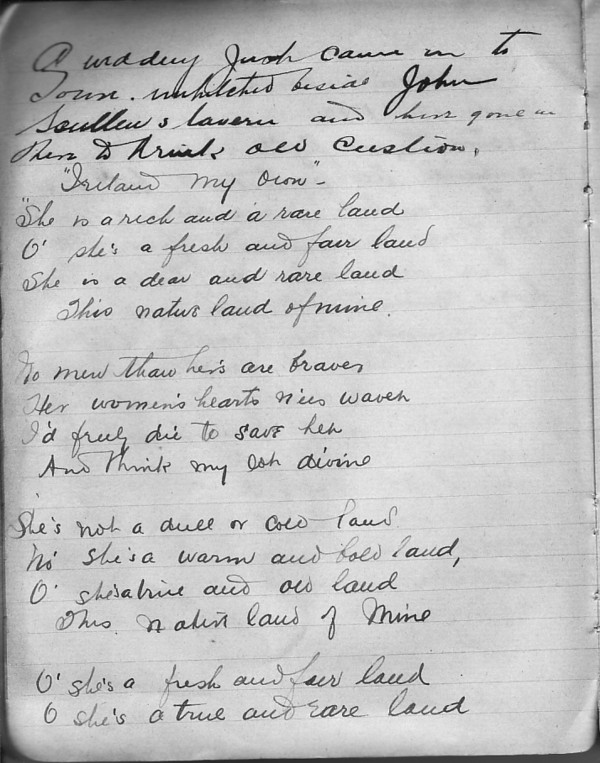 A wedding just came in to
Town. unhitched beside John
Scullen's tavern and have gone in
there to drink old custom.
"Ireland My Own"
"She is a rich and a rare land
O' she's a fresh and fair land
She is a dear and rare land
This native land of mine.
No men than her's are braver
Her women's hearts ne'er waver
I'd freely die to save her
And think my lot divine
She's not a dull or cold land
No' she's a warm and bold land,
O' she's a true and old land
This native land of Mine
O' she's a fresh and fair land
O she's a true and rare land